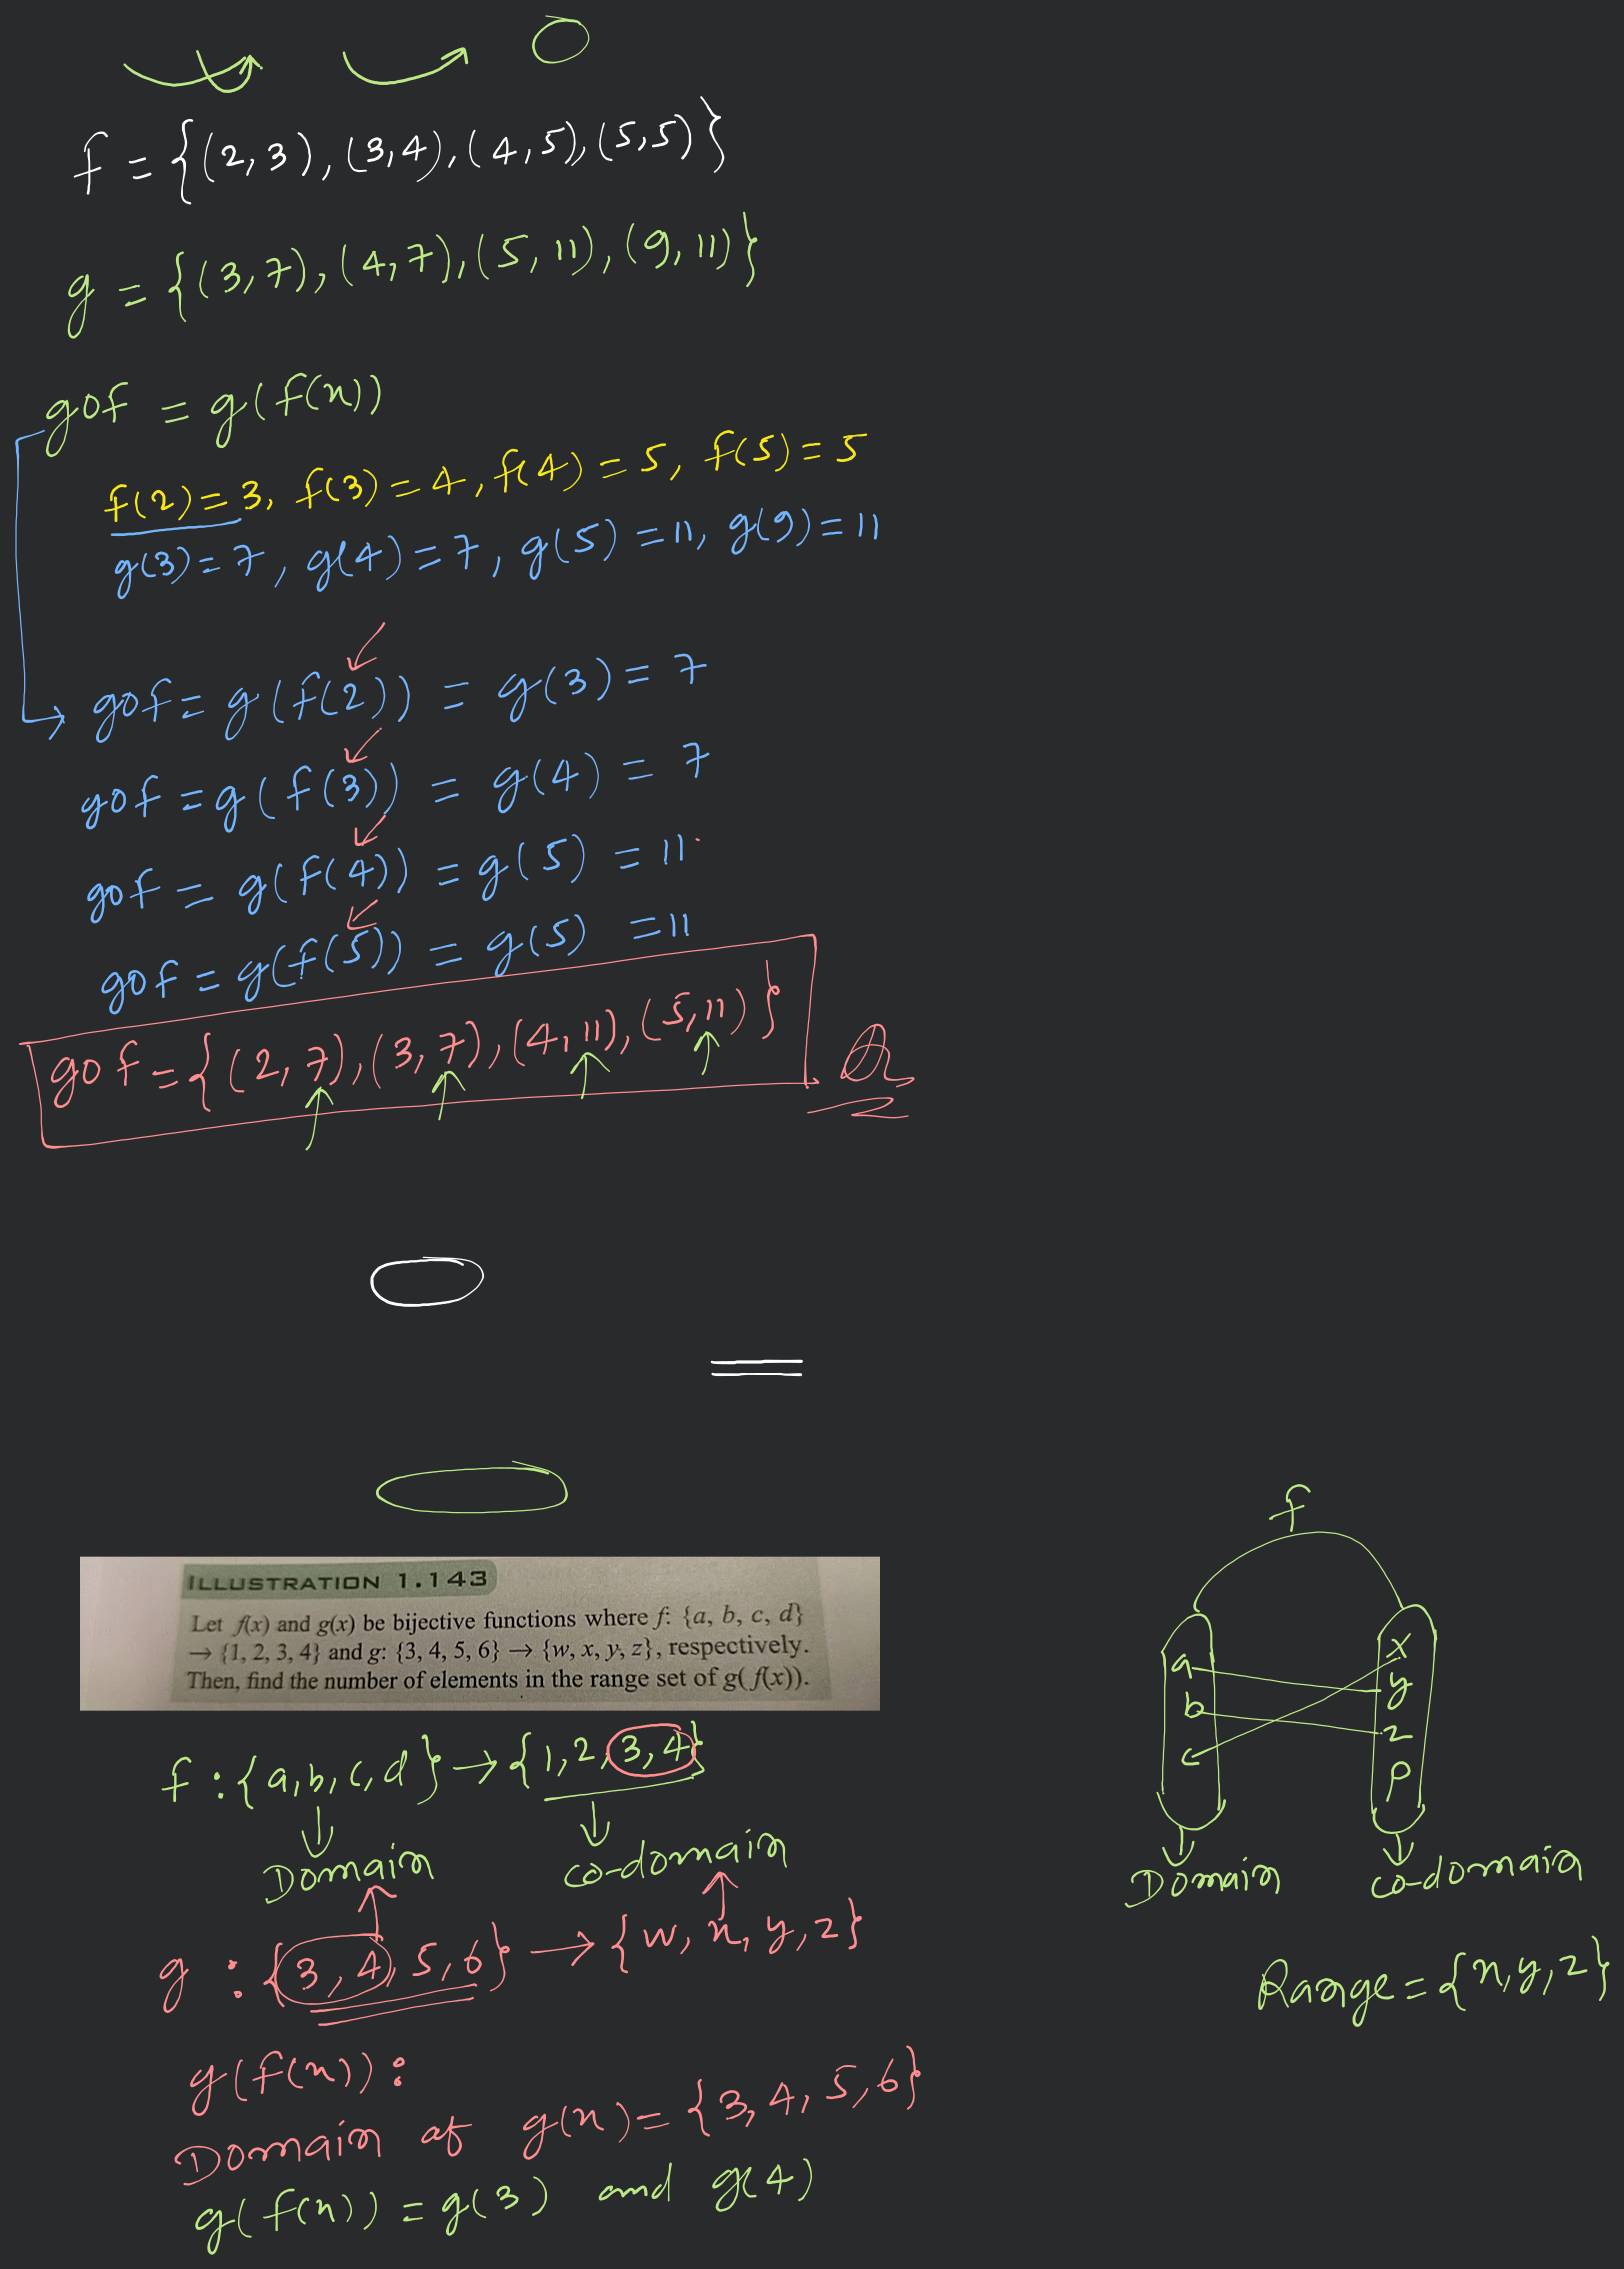 f = {(2,3), (3,4), (4,5), (5,5)}
g = {(3,7), (4,7), (5,11), (9,11)}
gof = g(f(x))
f(2)=3, f(3)=4, f(4)=5, f(5)=5
g(3)=7, g(4)=7, g(5)=11, g(9)=11
gof = g(f(2)) = g(3) = 7
gof = g(f(3)) = g(4) = 7
gof = g(f(4)) = g(5) = 11
gof = g(f(5)) = g(5) = 11
gof = {(2,7), (3,7), (4,11), (5,11)}
ILLUSTRATION 1.143
Let f(x) and g(x) be bijective functions where f: {a, b, c, d}
→ {1, 2, 3, 4} and g: {3, 4, 5, 6} → {w, x, y, z}, respectively.
Then, find the number of elements in the range set of g(f(x)).
f : {a,b,c,d} → {1,2,3,4}
Domain co-domain
g : {3,4,5,6} → {w,x,y,z}
g(f(x)) :
Domain of g(x) = {3,4,5,6}
g(f(x)) = g(3) and g(4)
f
a x
b y
c z
p
Domain co-domain
Range = {x,y,z}